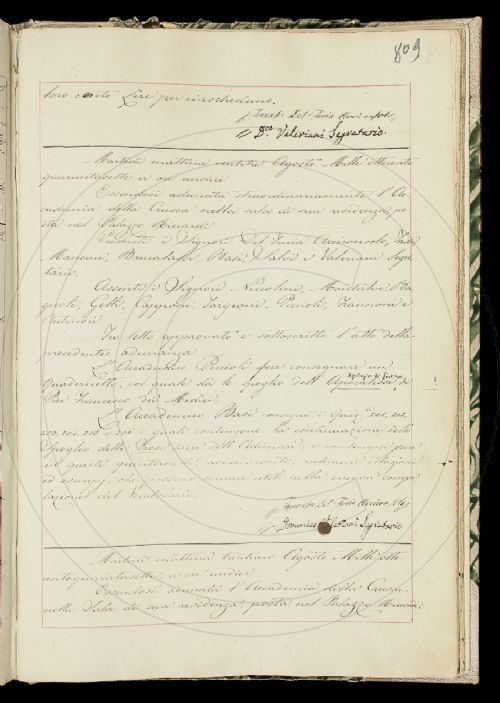 809
loro cento Lire per ciascheduno.
Dco Valeriani Segretario.
Martedì mattina Agosto Mille Ottocento
quarantasette a ore undici
Essendosi adunata straordinariamente l'Ac-
cademia della Crusca nella sala di sua residenza, po-
sta nel Palazzo Riccardi
Presenti i Signori Del Furia Arciconsolo,
Manuzzi, Brucalassi, Basi, Salvi e Valeriani Segre-
tario.
Assenti i Signori Niccolini, Montalvi,
Gelli, Capponi, Targioni, Puccioli, Franceschi e
Fu letto approvato e sottoscritto l'atto della
precedente adunanza
L'Accademico Puccioli fece consegnare un
Quadernetto, col quale dà lo spoglio dell' Apologia di
Pier Francesco dei Medici.
L'Accademico Basi consegnò i Quad.
i quali contengono la continuazione dello
Spoglio delle Prose
in questi quinternetti
ed esempj, che possono tornare utili nella nuova compi-
lazione del Vocabolario.
Francesco Del Furia
Domenico Valeriani Segretario
Martedì mattina trentuno Agosto Mille otto
cento quarantasette, a ore undici
Essendosi adunata l'Accademia della Crusca
nella Sala di sua residenza posta nel Palazzo Riccardi